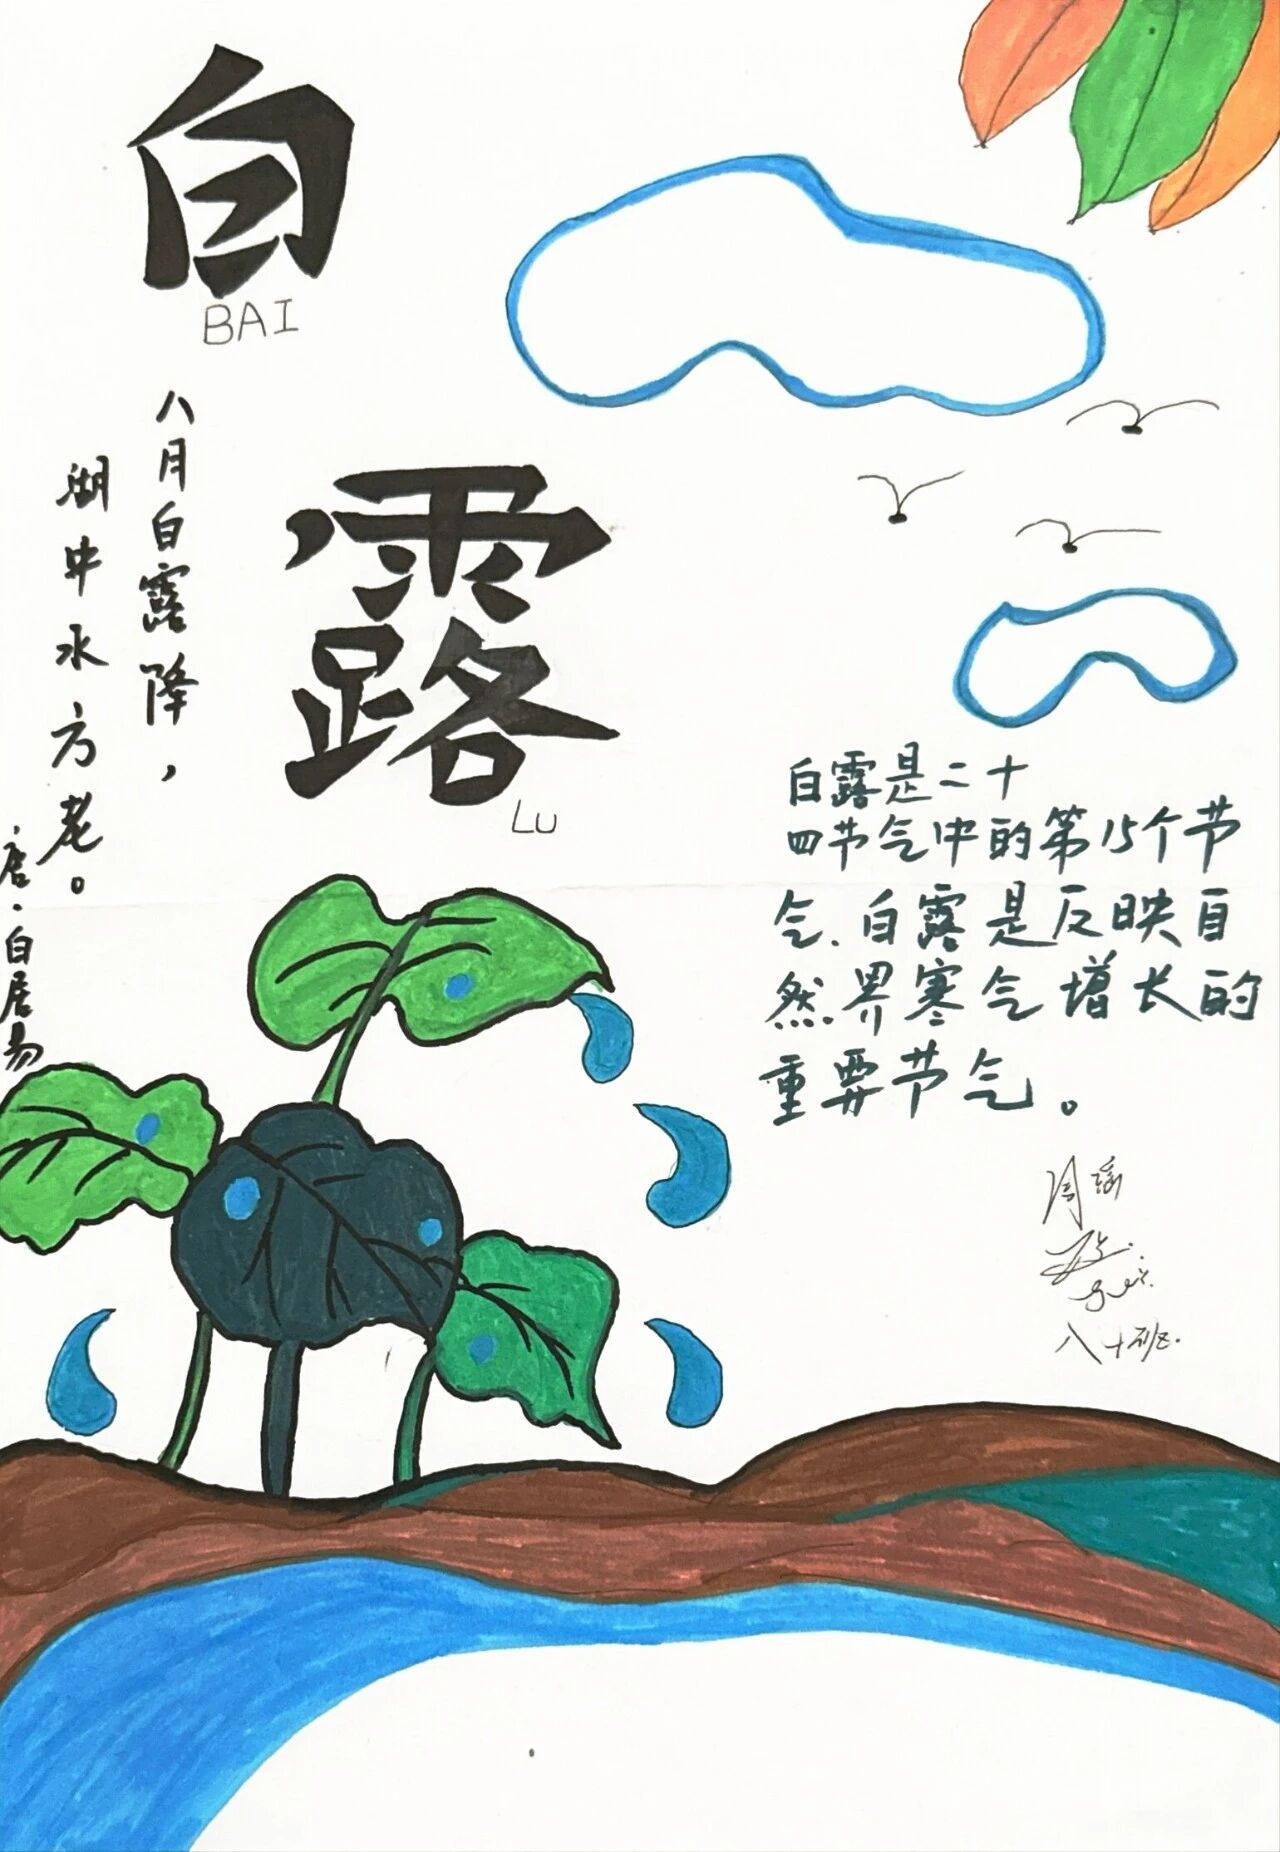 白
BAI
露
LU
八月白露降，
湖中水方老。
唐·白居易
白露是二十
四节气中的第15个节
气.白露是反映自
然界寒气增长的
重要节气。
周瑶
八十班.